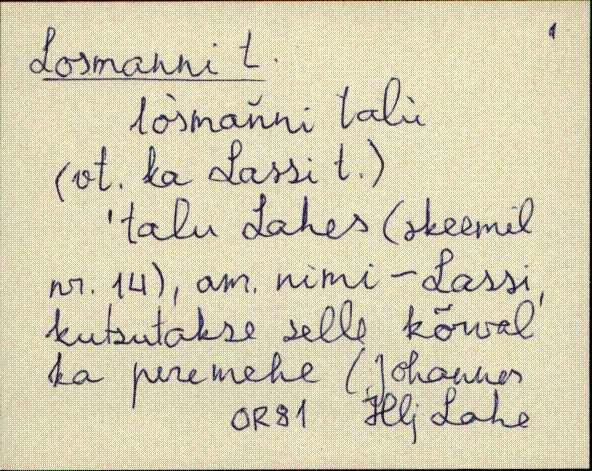 1
Losmanni t.
lòsman̆ni talù
(vt. ka Lassi t.)
'talu Lahes (skeemil
nr. 14), am. nimi - Lassi,
kutsutakse selle kõrval
ka peremehe (Johannes
OR81 Hlj Lahe